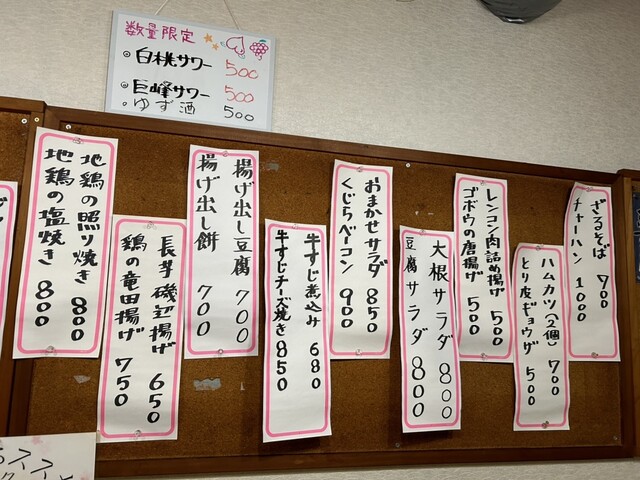 数量限定
◎白桃サワー 500
◎巨峰サワー 500
◎ゆず酒 500
ざるそば 700
チャーハン 1000
ハムカツ(2個) 700
とり皮ギョウザ 500
レンコン肉詰め揚げ 500
ゴボウの唐揚げ 500
大根サラダ 800
豆腐サラダ 800
おまかせサラダ 850
くじらベーコン 900
牛すじ煮込み 680
牛すじチーズ焼き 850
揚げ出し豆腐 700
揚げ出し餅 700
長芋磯辺揚げ 650
鶏の竜田揚げ 750
地鶏の照り焼き 800
地鶏の塩焼き 800
ススメ